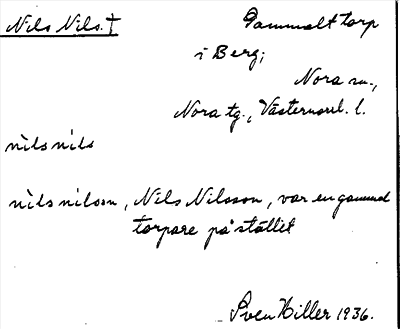 Nils Nils. † Gammalt torp
i Berg;
Nora sn.,
Nora tg., Västernorrl. l.
nìls nìls
nìls nilson, Nils Nilsson, var en gammal
torpare på stället
Sven Hiller 1936.